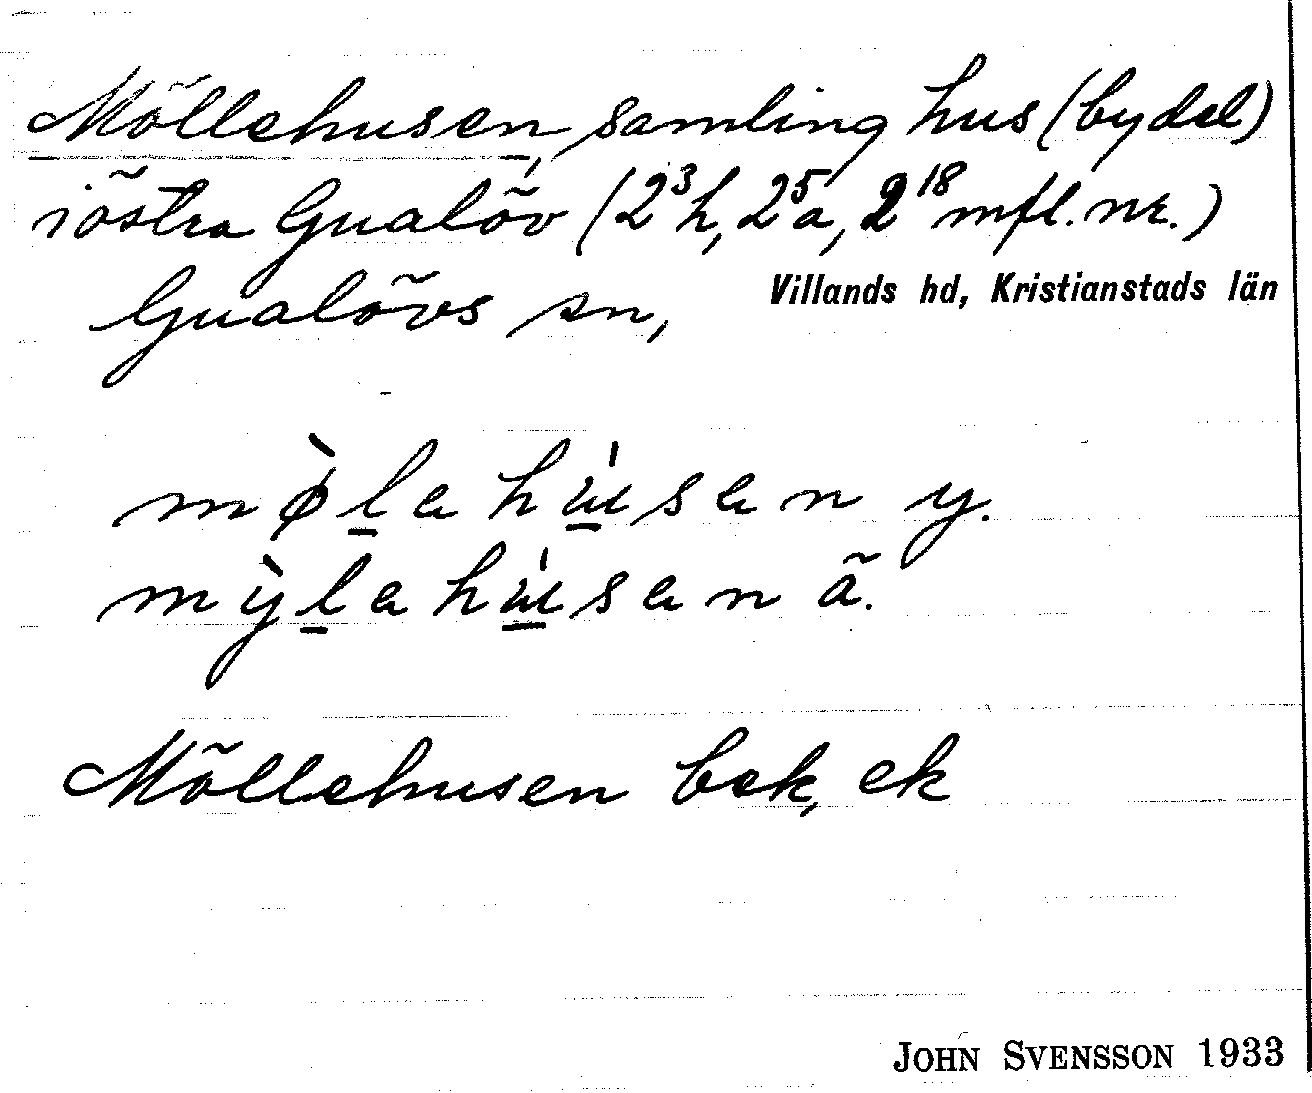 Möllehusen, samling hus (bydel)
i östra Gualöv (2³h, 2⁵a, 2¹⁸ mfl. nr.)
Gualövs sn, Villands hd, Kristianstads län
mø̀l̲a hu̲̍san y.
mỳl̲a hu̲̍san ä.
Möllehusen bek, ek
JOHN SVENSSON 1933